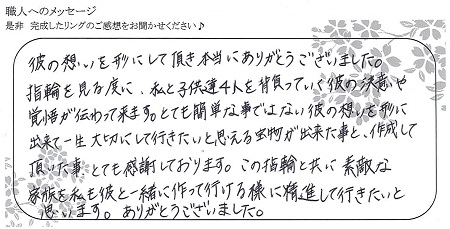 職人へのメッセージ
是非 完成したリングのご感想をお聞かせください♪
彼の想いを形にして頂き本当にありがとうございました。
指輪を見る度に、私と子供達4人を背負っていく彼の決意や
覚悟が伝わって来ます。とても簡単な事ではない彼の想いを形に
出来て一生大切にして行きたいと思える宝物が出来た事と、作成して
頂いた事、とても感謝しております。この指輪と共に素敵な
家族を私も彼と一緒に作って行ける様に精進して行きたいと
思います。ありがとうございました。